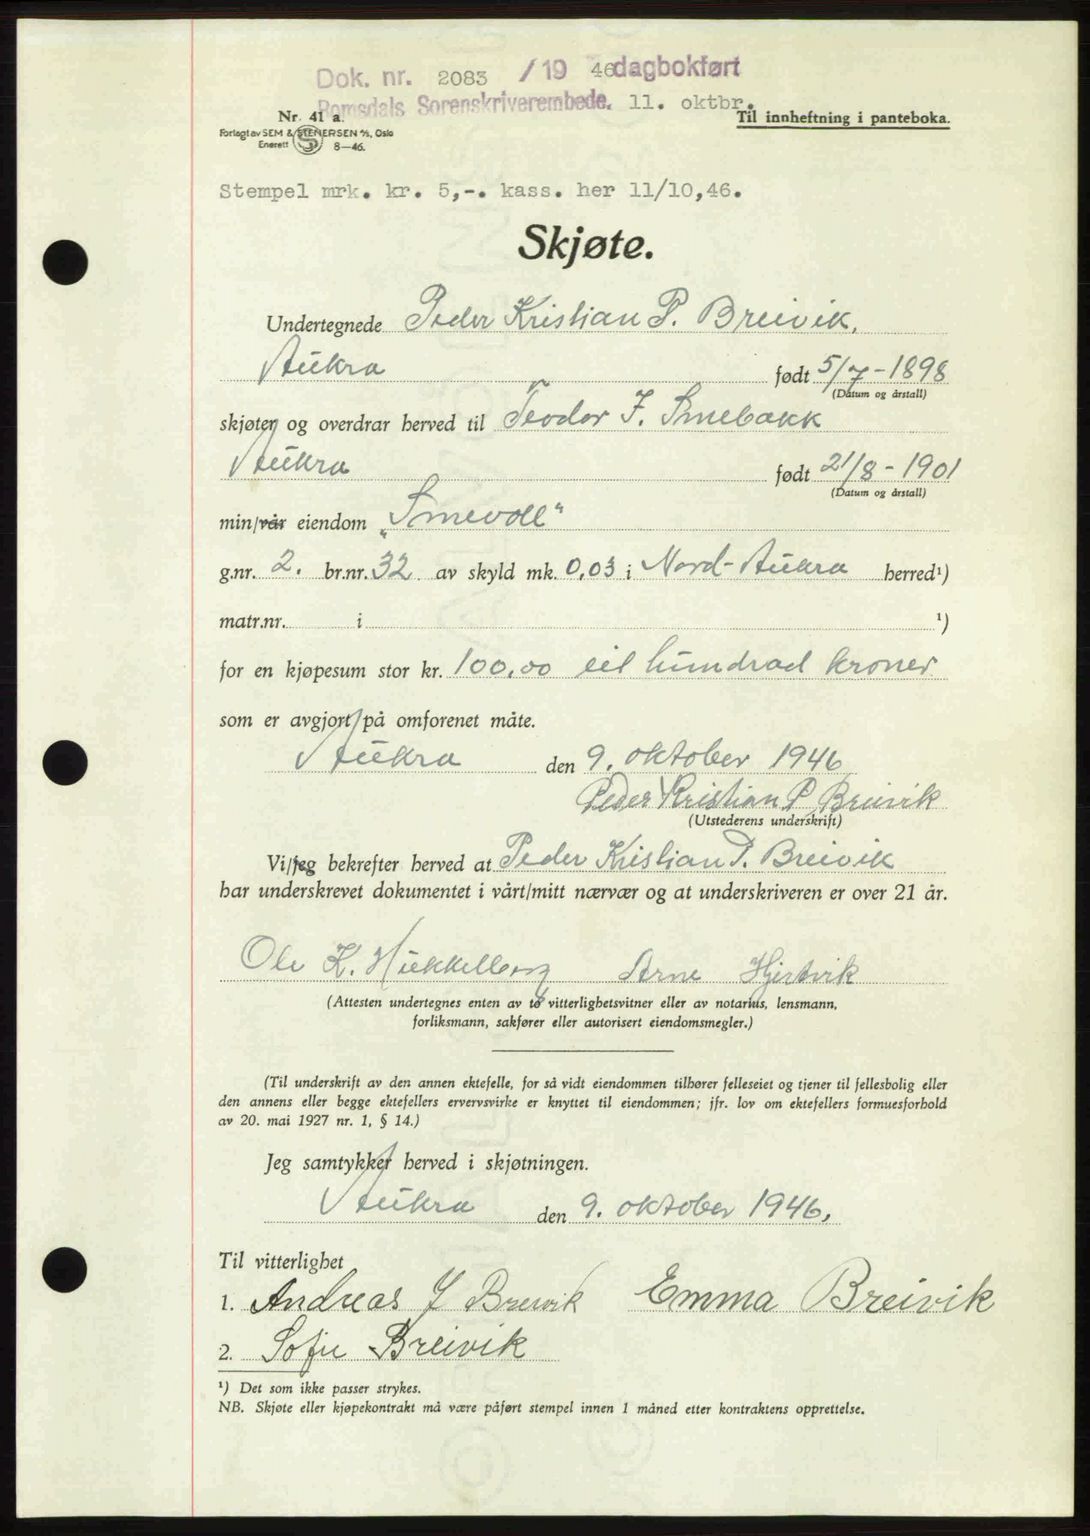 Dok. nr. 2083 /19 46 dagbokført
Romsdals Sorenskriverembede. 11. oktbr.
Nr. 41 a. Til innheftning i panteboka.
Forlagt av SEM & STENERSEN A/S, Oslo
Enerett S 8—46.
Stempel mrk. kr. 5,-. kass. her 11/10,46.
Skjøte.
Undertegnede Peder Kristian P. Breivik,
Aukra født 5/7-1898
(Datum og årstall)
skjøter og overdrar herved til Teodor F. Smebakk
Aukra født 21/8-1901
(Datum og årstall)
min/vår eiendom „Smevoll"
g.nr. 2. br.nr. 32 av skyld mk. 0,03 i Nord-Aukra herred¹)
matr.nr. i ¹)
for en kjøpesum stor kr. 100,00 eit hundrad kroner
som er avgjort på omforenet måte.
Aukra den 9. oktober 1946
Peder Kristian P Breivik
(Utstederens underskrift)
Vi/jeg bekrefter herved at Peder Kristian P. Breivik
har underskrevet dokumentet i vårt/mitt nærvær og at underskriveren er over 21 år.
Ole K. Hukkelberg Arne Hjertvik
(Attesten undertegnes enten av to vitterlighetsvitner eller av notarius, lensmann,
forliksmann, sakfører eller autorisert eiendomsmegler.)
(Til underskrift av den annen ektefelle, for så vidt eiendommen tilhører felleseiet og tjener til fellesbolig eller
den annens eller begge ektefellers ervervsvirke er knyttet til eiendommen; jfr. lov om ektefellers formuesforhold
av 20. mai 1927 nr. 1, § 14.)
Jeg samtykker herved i skjøtningen.
Aukra den 9. oktober 1946.
Til vitterlighet
1. Andreas J Breivik Emma Breivik
2. Sofie Breivik
¹) Det som ikke passer strykes.
NB. Skjøte eller kjøpekontrakt må være påført stempel innen 1 måned etter kontraktens opprettelse.